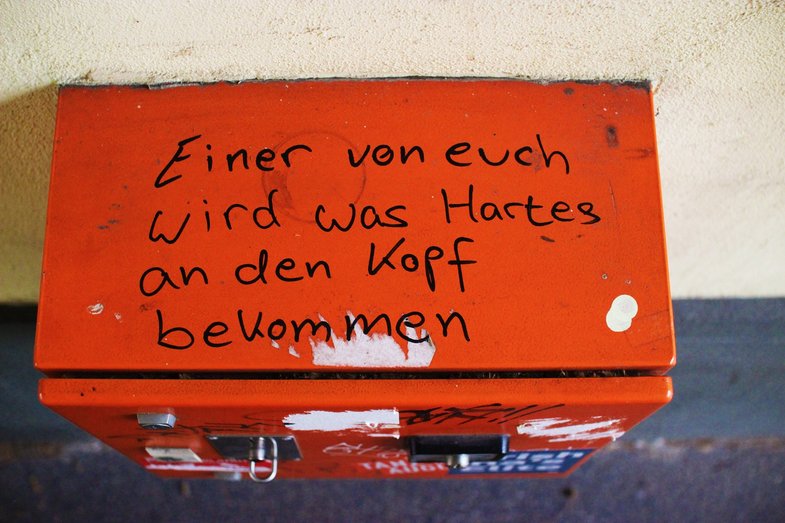 Einer von euch
wird was Hartes
an den Kopf
bekommen